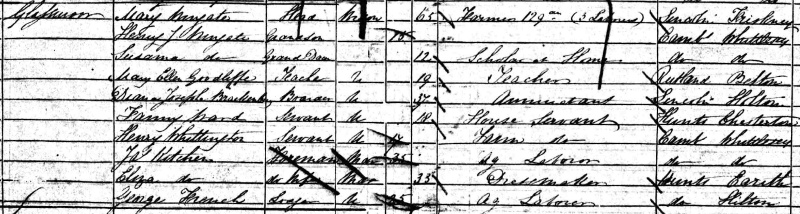 Mary Mary Head 65 Farmer 129 ac (3 Labours) Lincoln Friskney
Henry J Grandson 15 Camb Whittlesey
Susanna do Grand Daur 12 Scholar at Home do do
Mary Ellen Goodliffe Teacher U 19 Teacher Rutland Belton
Joseph Brackenbury Boarder U 37 Annuitant Lincoln Holton
Fanny Ward Servant U 18 House Servant Hunts Chesterton
Henry Whittington Servant U 17 Farm do Camb Whittlesey
Jas Kitchen Foreman Mar 35 Ag Laborer do do
Eliza do do Wife Mar 33 Dressmaker Hunts Earith
George French Lodger U 25 Ag Laborer do Hilton